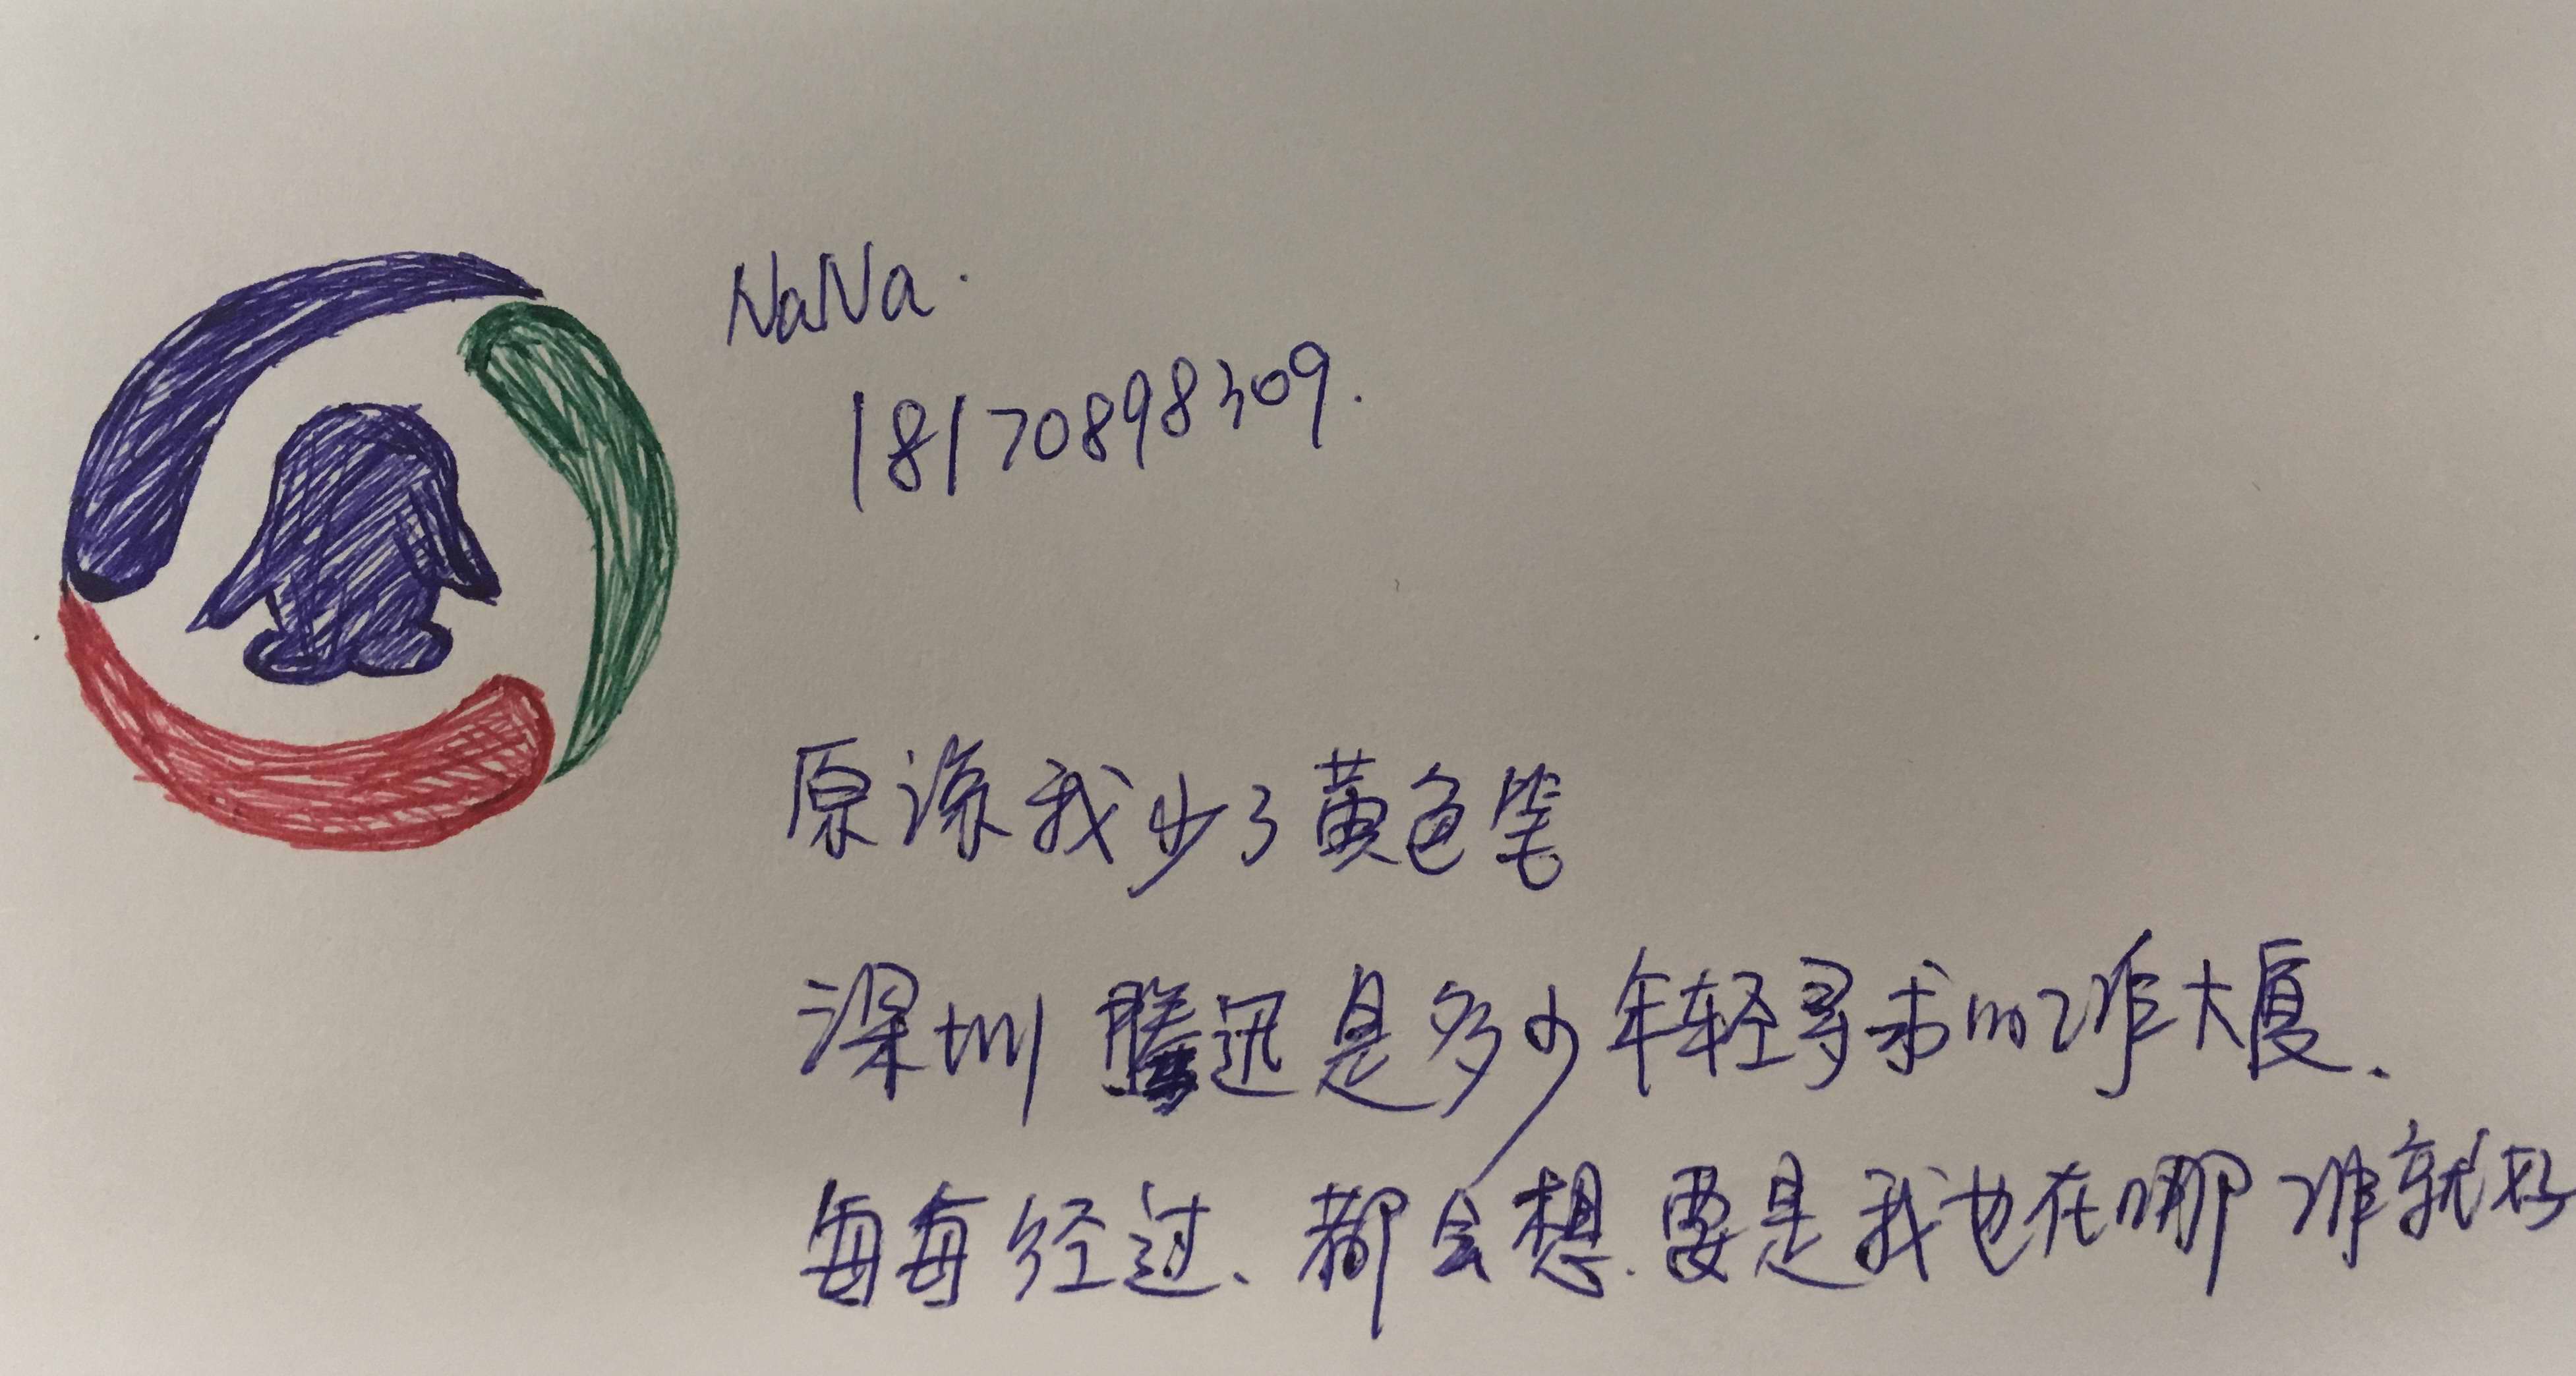 NaNa.
18170898309.
原谅我少了黄色笔
深圳腾迅是多少年轻寻求的那座大厦.
每每经过、都会想.要是我也在哪 就好